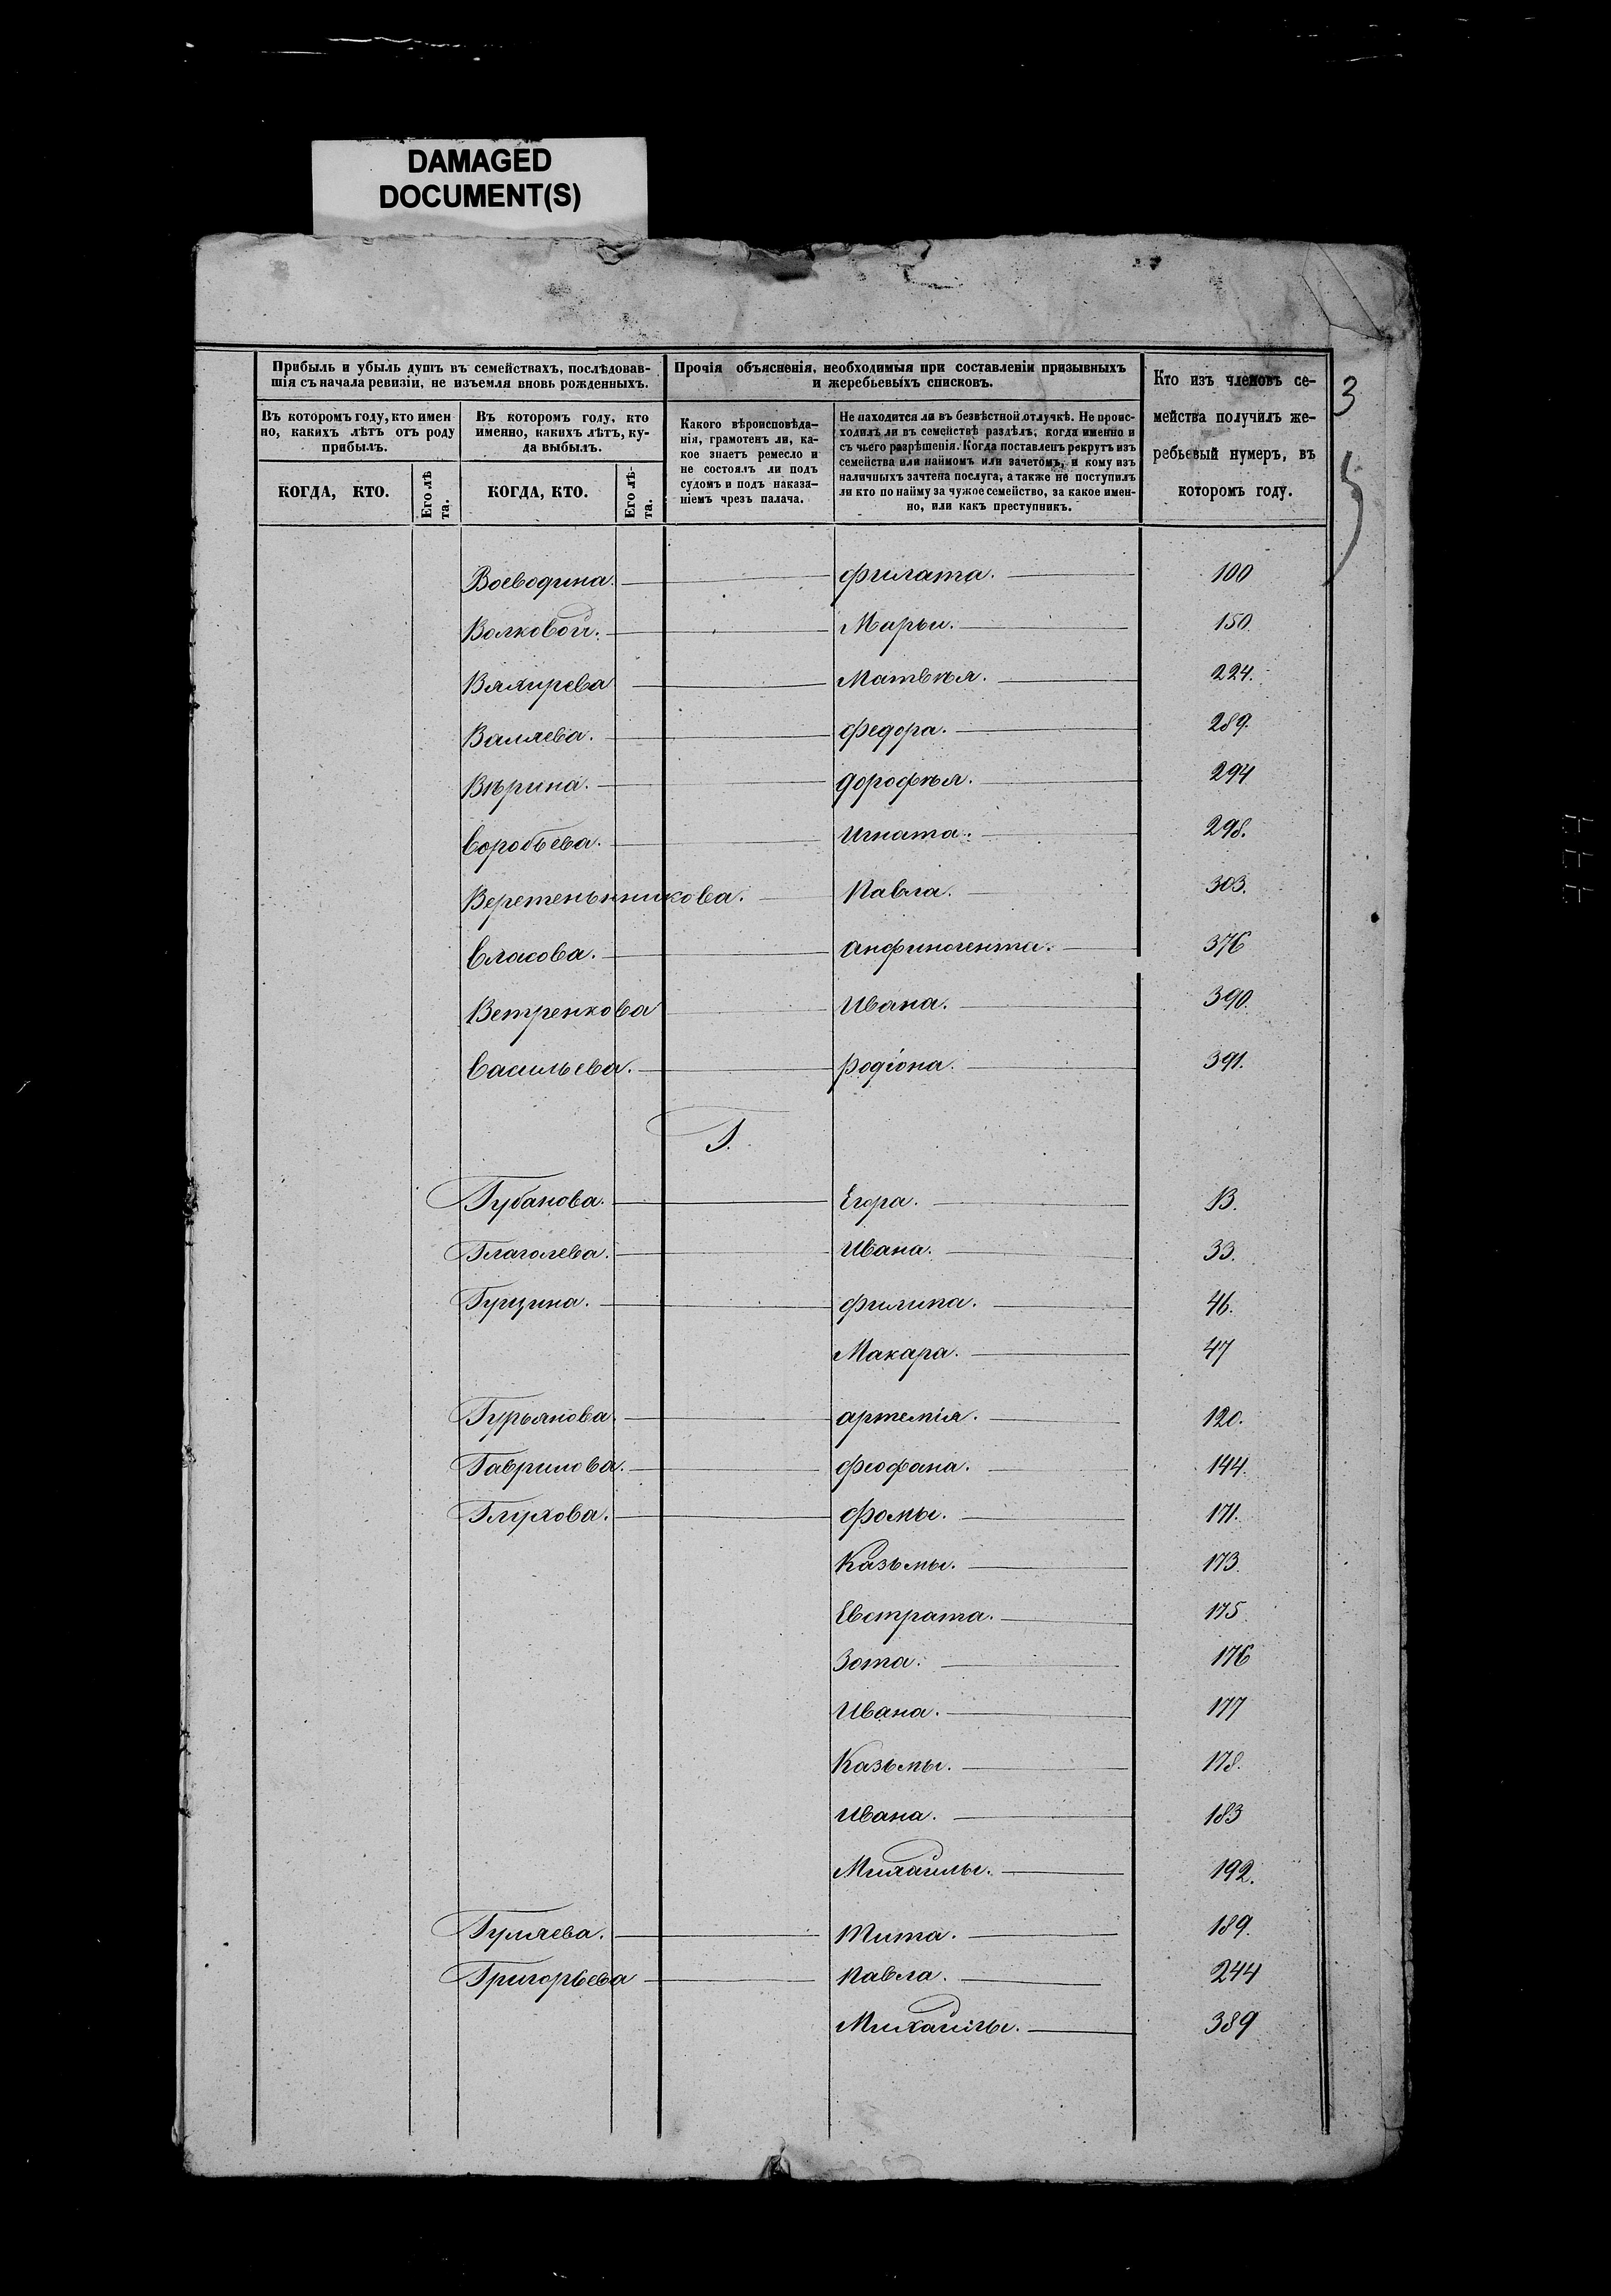 DAMAGED
DOCUMENT(S)
Прибыль и убыль душъ въ семействахъ, послѣдовав-
шія съ начала ревизіи, не изъемля вновь рожденныхъ.
Прочія объясненія, необходимыя при составленіи призывныхъ
и жеребьевыхъ списковъ.
Кто изъ членовъ се-
мейства получилъ же-
ребьевый нумеръ, въ
которомъ году.
3
Въ которомъ году, кто имен
но, какихъ лѣтъ отъ роду
прибылъ.
Въ которомъ году, кто
именно, какихъ лѣтъ, ку-
да выбылъ.
Какого вѣроисповѣда-
нія, грамотенъ ли, ка-
кое знаетъ ремесло и
не состоялъ ли подъ
судомъ и подъ наказа-
ніемъ чрезъ палача.
Не находится ли въ безвѣстной отлучкѣ. Не проис-
ходилъ ли въ семействѣ раздѣлъ, когда именно и
съ чьего разрѣшенія. Когда поставленъ рекрутъ изъ
семейства или наймомъ или зачетомъ, и кому изъ
наличныхъ зачтена послуга, а также не поступилъ
ли кто по найму за чужое семейство, за какое имен-
но, или какъ преступникъ.
КОГДА, КТО.
Его лѣ
та.
КОГДА, КТО.
Его лѣ-
та.
Воеводина. Филата. 100
Волковой. Марьи. 150
Вяхирева Матвѣя. 224.
Валяева. Федора. 289.
Вѣрина. Дорофѣя. 294
Воробьева. Игната. 298.
Веретенънникова. Павла. 303.
Власова. Анфиногента. 376
Ветренкова Ивана. 390.
Васильева. Родіона. 391.
Г.
Губанова. Егора. 13.
Глаголева. Ивана. 33.
Гущина. Филипа. 46.
Макара. 47
Гурьянова. Артемія. 120.
Гаврилова. Феофана. 144.
Глухова. Фомы. 171.
Казьмы. 173.
Евстрата. 175
Зота. 176
Ивана. 177
Казьмы. 178.
Ивана. 183
Михайлы. 192.
Гуляева. Тита. 189.
Григорьева Павла. 244
Михайлы. 389